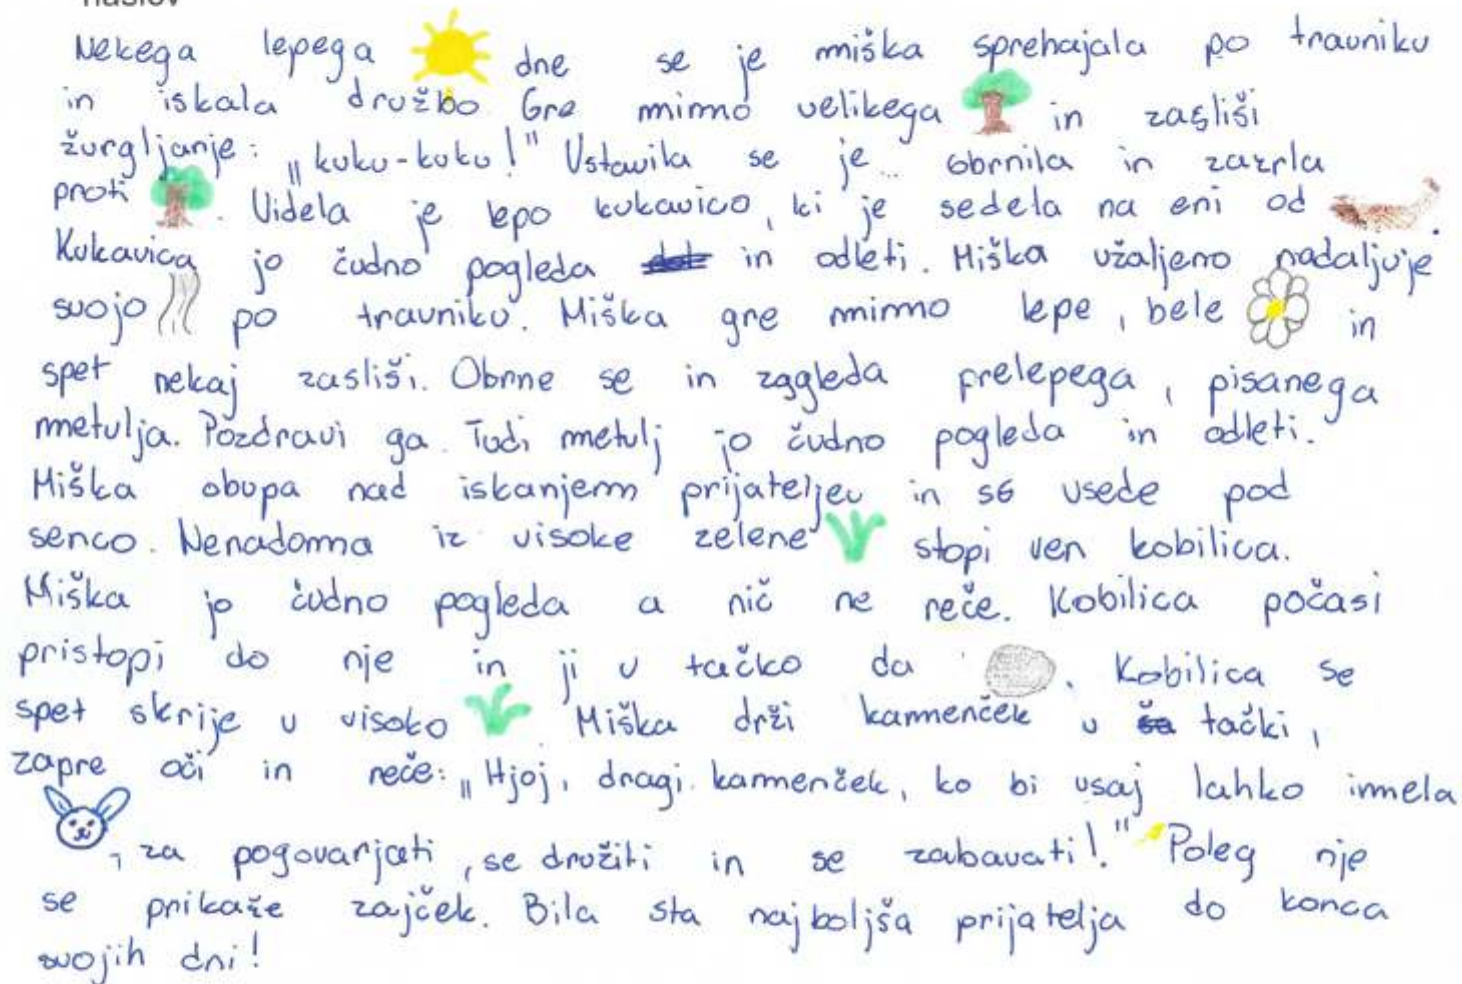 naslov
Nekega lepega dne se je miška sprehajala po travniku
in iskala družbo. Gre mimo velikega in zasliši
žvrgljanje: „kuku-kuku!" Ustavila se je.. obrnila in zazrla
proti . Videla je lepo kukavico, ki je sedela na eni od .
Kukavica jo čudno pogleda in odleti. Miška užaljeno nadaljuje
svojo po travniku. Miška gre mimo lepe, bele in
spet nekaj zasliši. Obrne se in zagleda prelepega, pisanega
metulja. Pozdravi ga. Tudi metulj jo čudno pogleda in odleti.
Miška obupa nad iskanjem prijateljev in se vsede pod
senco. Nenadoma iz visoke zelene stopi ven kobilica.
Miška jo čudno pogleda a nič ne reče. Kobilica počasi
pristopi do nje in ji v tačko da . Kobilica se
spet skrije v visoko . Miška drži kamenček v tački,
zapre oči in reče: „Hjoj, dragi kamenček, ko bi vsaj lahko imela
, za pogovarjati, se družiti in se zabavati!." Poleg nje
se prikaže zajček. Bila sta najboljša prijatelja do konca
svojih dni!